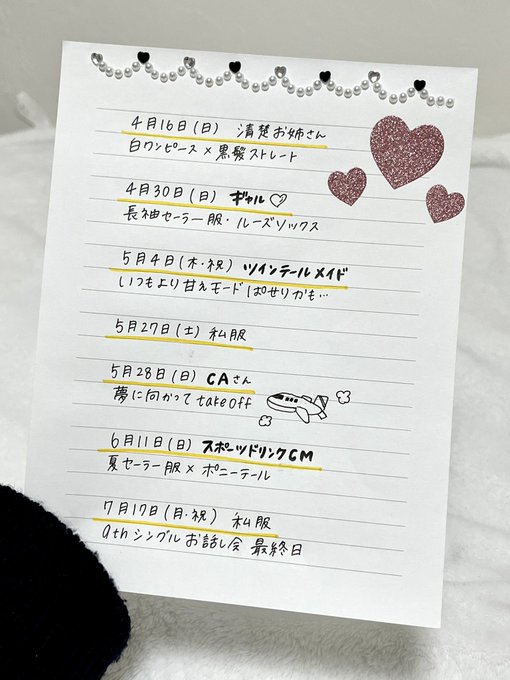 4月16日(日) 清楚お姉さん
白ワンピース×黒髪ストレート
4月30日(日) ギャル♡
長袖セーラー服・ルーズソックス
5月4日(木・祝) ツインテールメイド
いつもより甘えモードぱせりかも…
5月27日(土) 私服
5月28日(日) CAさん
夢に向かってtakeoff
6月11日(日) スポーツドリンクCM
夏セーラー服×ポニーテール
7月17日(月・祝) 私服
9thシングルお話し会 最終日